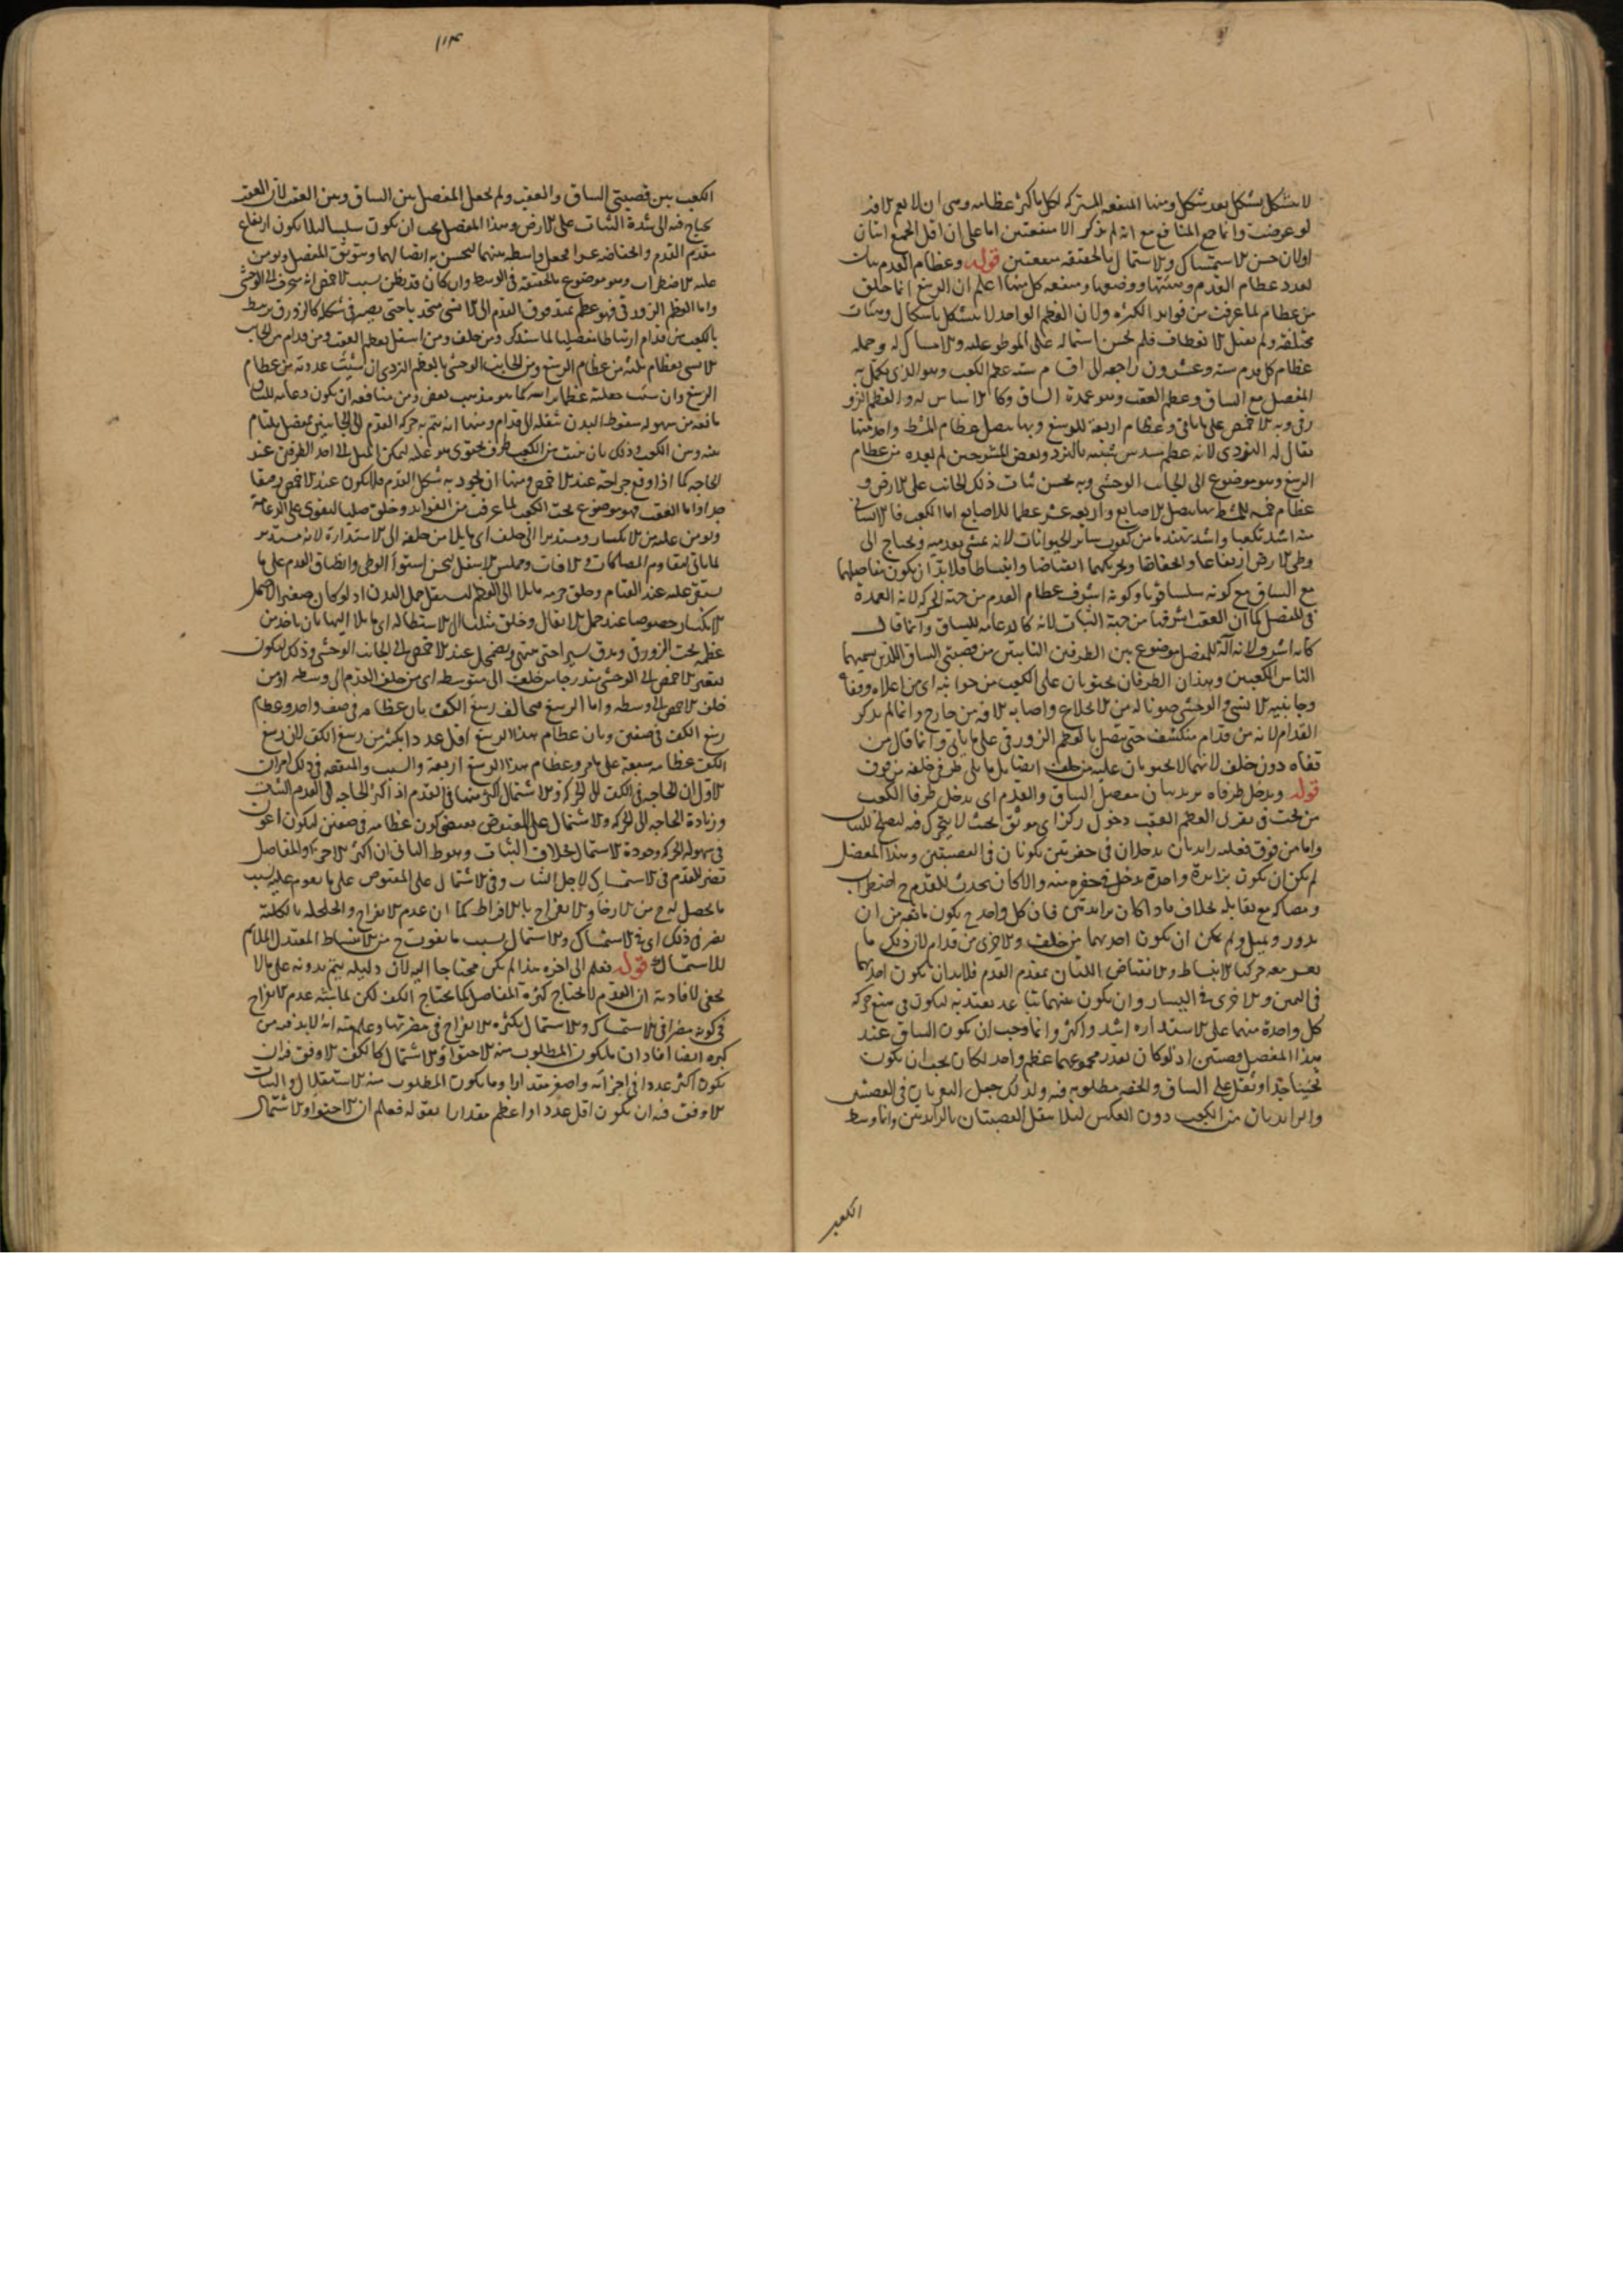 لا يتشكل بشكل بعد شكل ومنها المنفعة المشتركة لكل ما كثر عظامه وهى ان لا يعم الافة
لو عرضت وانما جمع المنافع مع انه لم يذكر الا منفعتين اما على ان اقل الجمع اثنان
اولان حسن الاستمساك والاشتمال بالحقيقة منفعتين قوله وعظام القدم
لعدد عظام القدم وهيئتها ووضعها ومنفعة كل منها اعلم ان الرسغ انما خلق
من عظام لما عرفت من فوايد الكثرة ولان العظم الواحد لا يتشكل باشكال وهيئات
مختلفة ولم يقبل الانعطاف فلم يحسن اشتماله على الموطو عليه والامساك له وجملة
عظام كل قدم ستة وعشرون راجعة الى اقسام ستة عظم الكعب وهو الذى يكمل به
المفصل مع الساق وعظم العقب وهو عمدة الساق وكالاساس له والعظم الزو
رقى وبه الاخمص على ما ياتى وعظام اربعة للرسغ وبها يتصل عظام المشط واحد منها
يقال له النردى لانه عظم مسدس شبيه بالنرد وبعض المشرحين لم يعده من عظام
الرسغ وهو موضوع الى الجانب الوحشى وبه يحسن ثبات ذلك الجانب على الارض و
عظام خمسة للمشط بها يتصل الاصابع واربعة عشر عظما للاصابع اما الكعب فالانسانى
منه اشد تكعيبا واشد تهندما من كعوب ساير الحيوانات لانه يمشى بقدميه ويحتاج الى
وطى الارض ارتفاعا وانخفاضا وتحريكهما انقباضا وانبساطا فلا بد ان يكون مفاصلهما
مع الساق مع كونه سلسا قويا وكونه اشرف عظام القدم من جهة الحركة لانه العمدة
فى المفصل كما ان العقب اشرفها من جهة الثبات لانه كالدعامة للساق وانما قال
كانه اشرف لانه آلة للمفصل موضوع بين الطرفين الناتيين من قصبتى الساق اللذين يسميهما
الناس الكعبين وهذان الطرفان يحتويان على الكعب من جوانبه اى من اعلاه وقفاه
وجانبيه الانسى والوحشى صونا له من الانخلاع واصابة الافة من خارج وانما لم يذكر
القدام لانه من قدام منكشف حتى يتصل بالعظم الزورقى على ما ياتى وانما قال من
قفاه دون خلف لانهما لا يحتويان عليه من خلف ايضا بل ما يلى طرفى خلفه من فوق
قوله ويدخل طرفاه يريد بيان مفصل الساق والقدم اى يدخل طرفا الكعب
من تحت فى نقرتى العظم العقب دخول ركز اى موثق بحيث لا يتحرك فيه ليصلح للثبات
واما من فوق فعليه زايدتان يدخلان فى حفرتين يكونان فى القصبتين وهذا المفصل
لم يكن ان يكون بزايدة واحدة يدخل فى حفرة منه والا لكان يحدث للقدم ح اضطراب
ومصاكة مع نقابله بخلاف ما اذا كان بزايدتين فان كل واحدة ح يكون مانعة من ان
يدور ويميل ولم يمكن ان يكون احديهما من خلف والاخرى من قدام لان ذلك ما
يعسر معه حركتا الانبساط والانقباض اللتان بمقدم القدم فلا بد ان يكون احديهما
فى اليمين والاخرى فى اليسار وان يكون بينهما تباعد يعتد به ليكون فى منع حركة
كل واحدة منهما على الاستدارة اشد واكثر وانما وجب ان يكون الساق عند
هذا المفصل قصبتين اذ لو كان بقدر مجموعهما عظم واحد لكان يجب ان يكون
ثخينا جدا وثقل على الساق والخفة مطلوبة فيه ولذلك جعل النقرتان فى القصبتين
والزايدتان من الكعب دون العكس ليلا يثقل القصبتان بالزايدتين وانما وسط
الكعب
١١٣
الكعب بين قصبتى الساق والعقب ولم يجعل المفصل بين الساق وبين العقب لان العقب
يحتاج فيه الى شدة الثبات على الارض وهذا المفصل يجب ان يكون سلسا ليلا يكون ارتفاع
مقدم القدم وانخفاضه عسرا فجعل واسطة بينهما ليحسن به اتصالهما وتوثق المفصل ويومن
عليه الاضطراب وهو موضوع بالحقيقة فى الوسط وان كان قد يظن بسبب الاخمص انه منحرف الى الوحشى
واما العظم الزورقى فهو عظم يمتد فوق القدم الى الانسى متحدبا حتى يصير فى شكله كالزورق يرتبط
بالكعب من قدام ارتباطا مفصليا لما ستذكر ومن خلف ومن اسفل بعظم العقب ومن قدام من الجانب
الانسى بعظام ثلثة من عظام الرسغ ومن الجانب الوحشى بالعظم النردى ان شئت عددته من عظام
الرسغ وان شئت جعلته عظما براسه كما هو مذهب بعض ومن منافعه ان يكون دعامة للساق
مانعة من سهولة سقوط البدن بثقله الى قدام ومنها انه يتم به حركة القدم الى الجانبين بمفصل يلتام
بينه وبين الكعب وذلك بان ينبت من الكعب طرف يحتوى هو عليه ليمكن الميل الى احد الطرفين عند
الحاجة كما اذا وقع جراحة عند الاخمص ومنها ان يجود به شكل القدم فلا يكون عند الاخمص رقيقا
جدا واما العقب فهو موضوع تحت الكعب لما عرفت من الفوايد وخلق صلبا ليقوى على الدعامة
ويومن عليه من الانكسار ومستديرا الى خلف اى مايلا من خلفه الى الاستدارة لانه مستدير
لما ياتى ليقاوم المصاكات والافات ومملس الاسفل ليحسن استواء الوطى وانطباق القدم على ما
يستقر عليه عند القيام وخلق جرمه مايلا الى العظم ليستقل بحمل البدن اذ لو كان صغيرا لاحتمل
الانكسار خصوصا عند حمل الاثقال وخلق مثلثا الى الاستطالة اى مايلا اليها بان ياخذ من
عظمه تحت الزورق ويدق يسيرا حتى ينتهى ويضمحل عند الاخمص الى الجانب الوحشى وذلك ليكون
تقعير الاخمص الى الوحشى متدرجا من خلف الى متوسطه اى من خلف القدم الى وسطه او من
خلف الاخمص الى وسطه واما الرسغ فيخالف رسغ الكف بان عظامه فى صف واحد وعظام
رسغ الكف فى صفين وبان عظام هذا الرسغ اقل عددا بكثير من رسغ الكف لان رسغ
الكف عظامه سبعة على ما مر وعظام هذا الرسغ اربعة والسبب والمنفعة فى ذلك امران
الاول ان الحاجة فى الكف الى الحركة والاشتمال اكثر منها فى القدم اذ اكثر الحاجة فى القدم الثبات
وزيادة الحاجة الى الحركة والاشتمال على المقبوض يقتضى كون عظامه فى صفين ليكون اعون
فى سهولة الحركة وجودة الاشتمال بخلاف الثبات وهو ط الثانى ان اكثر الاجزاء والمفاصل
تضر القدم فى الاستمساك لاجل الثبات وفى الاشتمال على المقبوض على ما يقوم عليه بسبب
ما يحصل له ح من الارخاء والانفراج بالافراط كما ان عدم الانفراج والخلخلة بالكلية
يضر فى ذلك اى فى الاستمساك والاشتمال بسبب ما يفوت ح من الانبساط المعتدل الملايم
للاشتمال قوله فعلم الى اخره هذا لم يكن محتاجا اليه لان دليله يتم بدونه على ما لا
يخفى لافادته ان القدم لا يحتاج كثرة المفاصل كما يحتاج الكف لكن لما شبه عدم الانفراج
فى كونه مضرا فى الاستمساك والاشتمال بكثرة الانفراج فى مضرتها وعلم منه انه لا بد فيه من
كثرة ايضا افاد ان ما يكون المطلوب منه الاحتواء والاشتمال كالكف الاوفق فيه ان
يكون اكثر عددا فى اجزائه واصغر مقدارا وما يكون المطلوب منه الاستقلال والثبات
الاوفق فيه ان يكون اقل عددا واعظم مقدارا بقوله فعلم ان الاحتواء والاشتمال